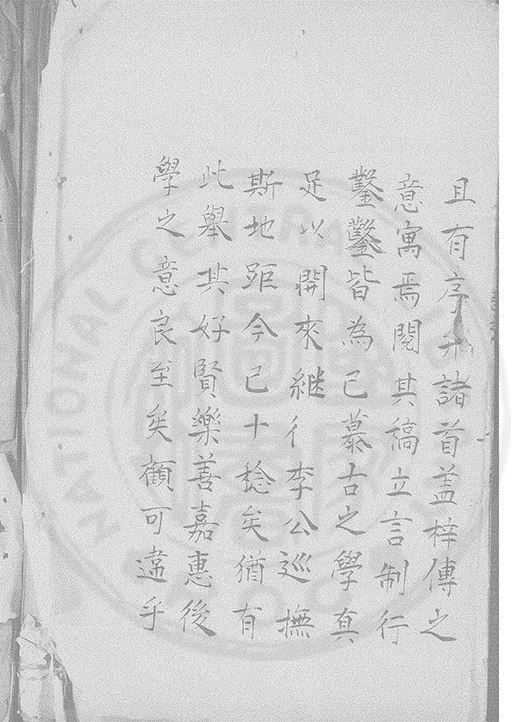 且有序弁諸首盖梓傳之
意寓焉閱其稿立言制行
鑿鑿皆為己慕古之學真
足以開來継彳李公巡撫
斯地距今已十稔矣猶有
此舉其好賢樂善嘉惠後
學之意良至矣顧可違乎